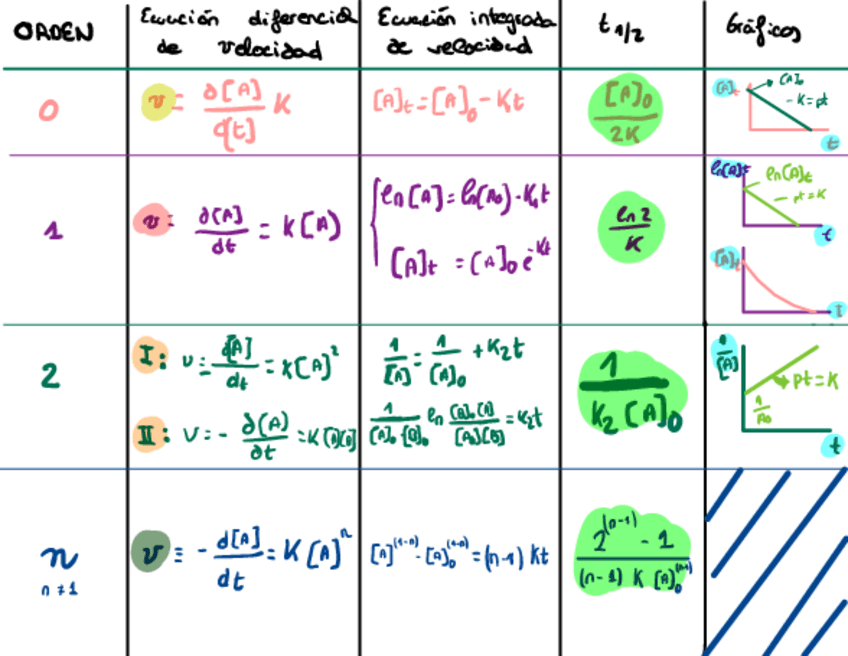 ORDEN
Ecuación diferencial
de velocidad
Ecuación integrada
de velocidad
t 1/2
Gráficos
0
v = ∂[A] / d[t] K
[A]t = [A]0 - Kt
[A]0 / 2K
[A]t
[A]0
-K=pt
t
1
v = ∂[A] / dt = K[A]
ln[A] = ln[A0] - K1t
[A]t = [A]0 e^-Kt
ln 2 / K
ln[A]t
ln[A]t
- pt=K
t
[A]t
t
2
I: v = d[A] / dt = K[A]^2
II: V = - ∂[A] / ∂t = K[A][B]
1/[A] = 1/[A]0 + K2t
1 / K2 [A]0
1/[A]
pt=K
1/A0
t
n
n≠1
v ≡ - d[A] / dt = K[A]^n
[A]^(1-n) - [A]0^(1-n) = (n-1) Kt
2^(n-1) - 1 / (n-1) K [A]0^(n-1)